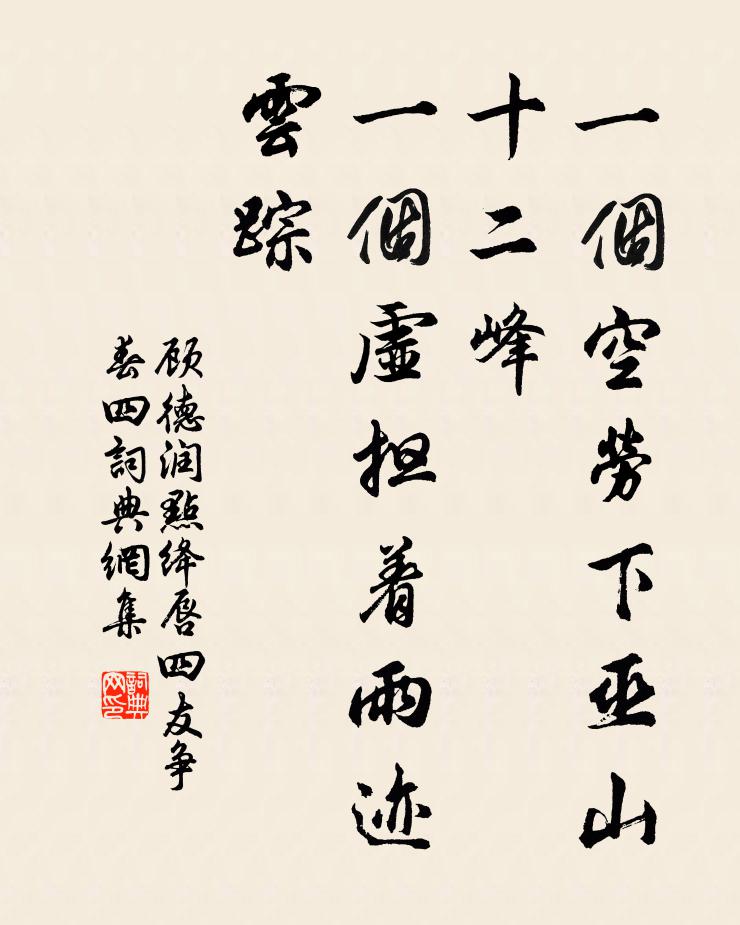 一個空勞下巫山
十二峰
一個虛担着雨迹
雲踪
顾德润點绛唇四友争
春四詞典網集
詞典
网印